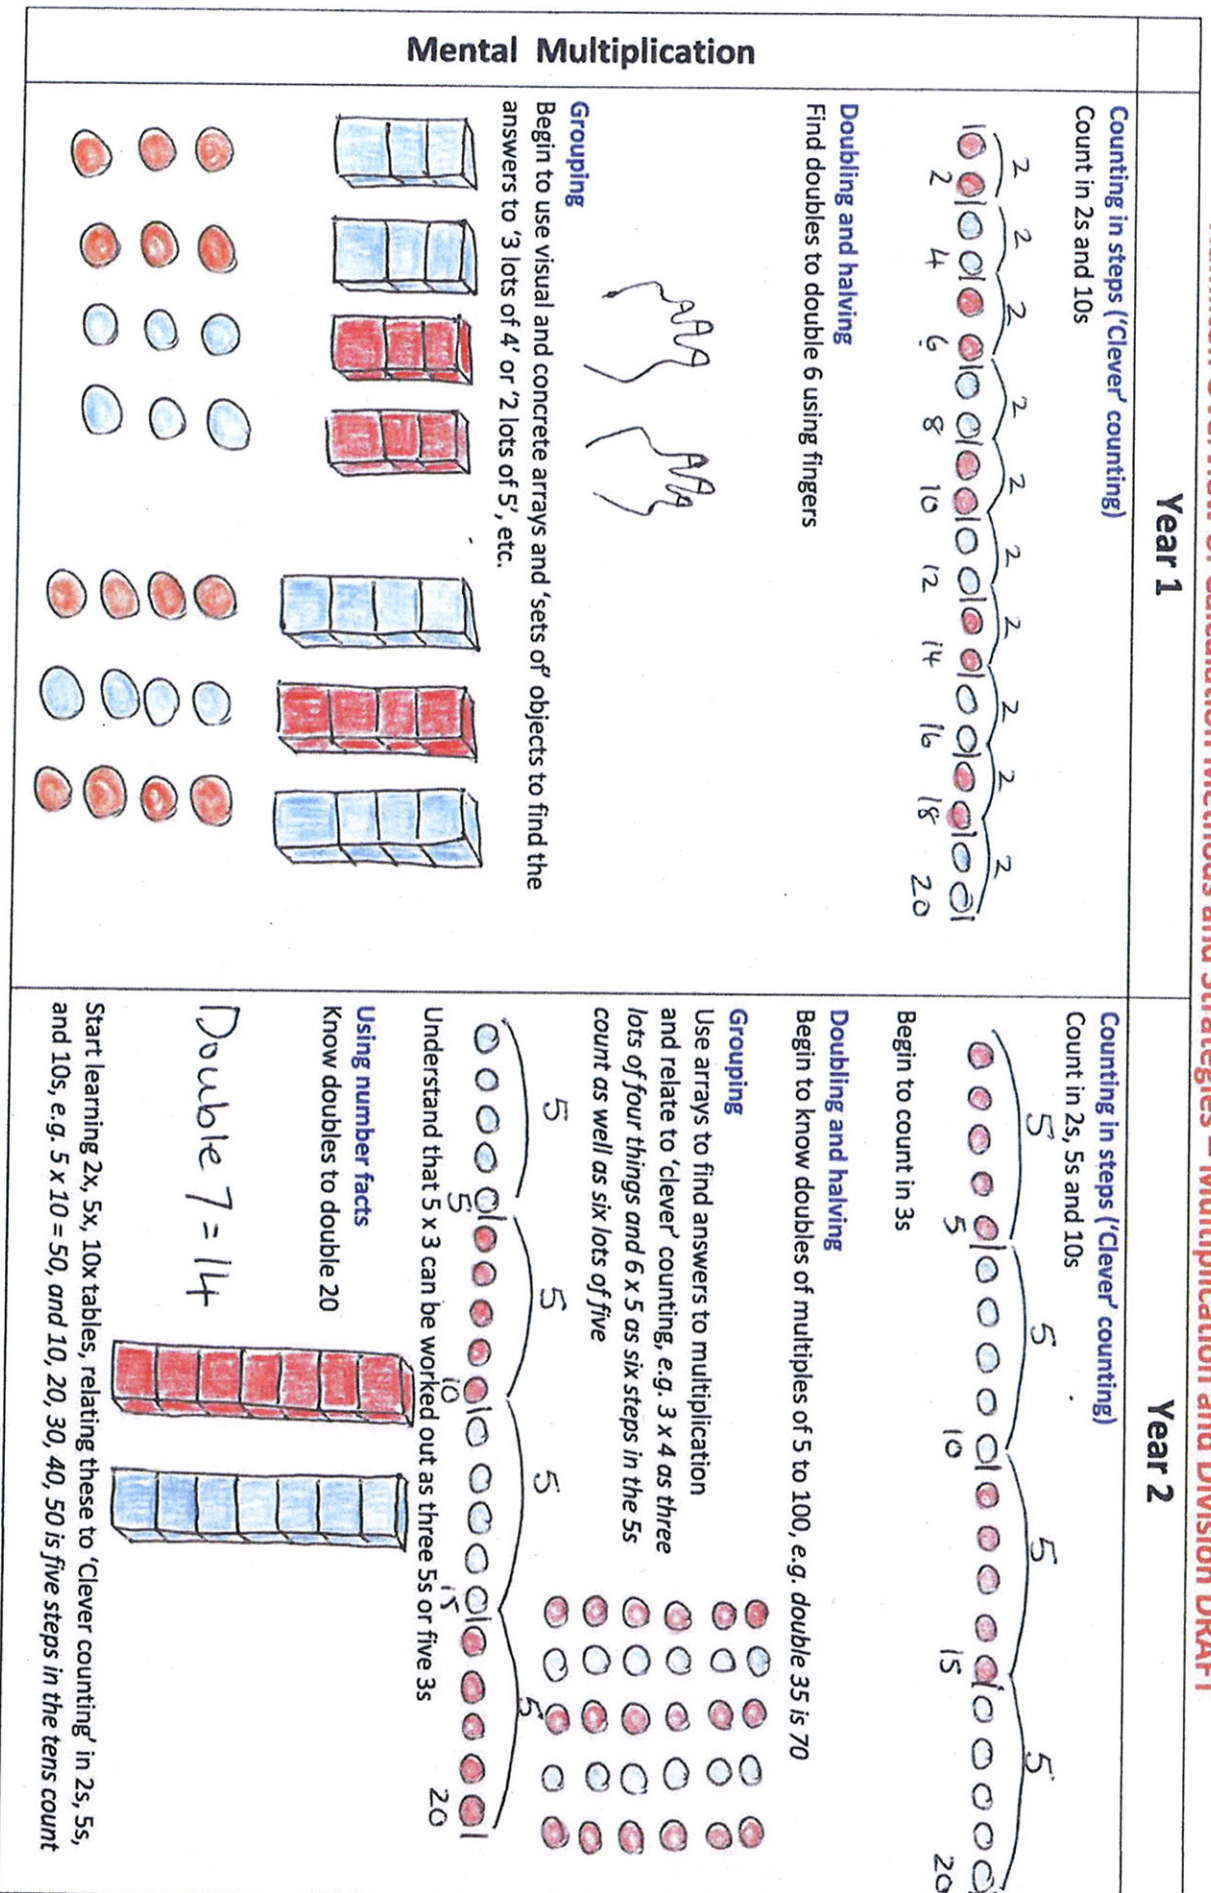 Calculation Methods and Strategies – Multiplication and Division DRAFT
Year 1
Year 2
Mental Multiplication
Counting in steps (‘Clever’ counting)
Count in 2s and 10s
2 2 2 2 2 2 2 2 2 2
2 4 6 8 10 12 14 16 18 20
Doubling and halving
Find doubles to double 6 using fingers
Grouping
Begin to use visual and concrete arrays and ‘sets of’ objects to find the
answers to ‘3 lots of 4’ or ‘2 lots of 5’, etc.
Counting in steps (‘Clever’ counting)
Count in 2s, 5s and 10s
5 5 5 5
5 10 15 20
Begin to count in 3s
Doubling and halving
Begin to know doubles of multiples of 5 to 100, e.g. double 35 is 70
Grouping
Use arrays to find answers to multiplication
and relate to ‘clever’ counting, e.g. 3 x 4 as three
lots of four things and 6 x 5 as six steps in the 5s
count as well as six lots of five
5 5 5 5
5 10 15 20
Understand that 5 x 3 can be worked out as three 5s or five 3s
Using number facts
Know doubles to double 20
Double 7 = 14
Start learning 2x, 5x, 10x tables, relating these to ‘Clever counting’ in 2s, 5s,
and 10s, e.g. 5 x 10 = 50, and 10, 20, 30, 40, 50 is five steps in the tens count